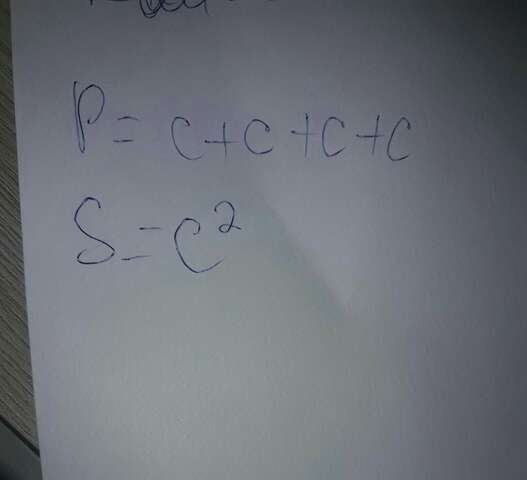 P = c + c + c + c
S = c²